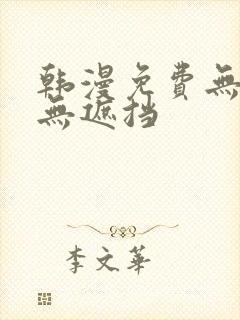 韩漫免费無
無遮挡
李文華